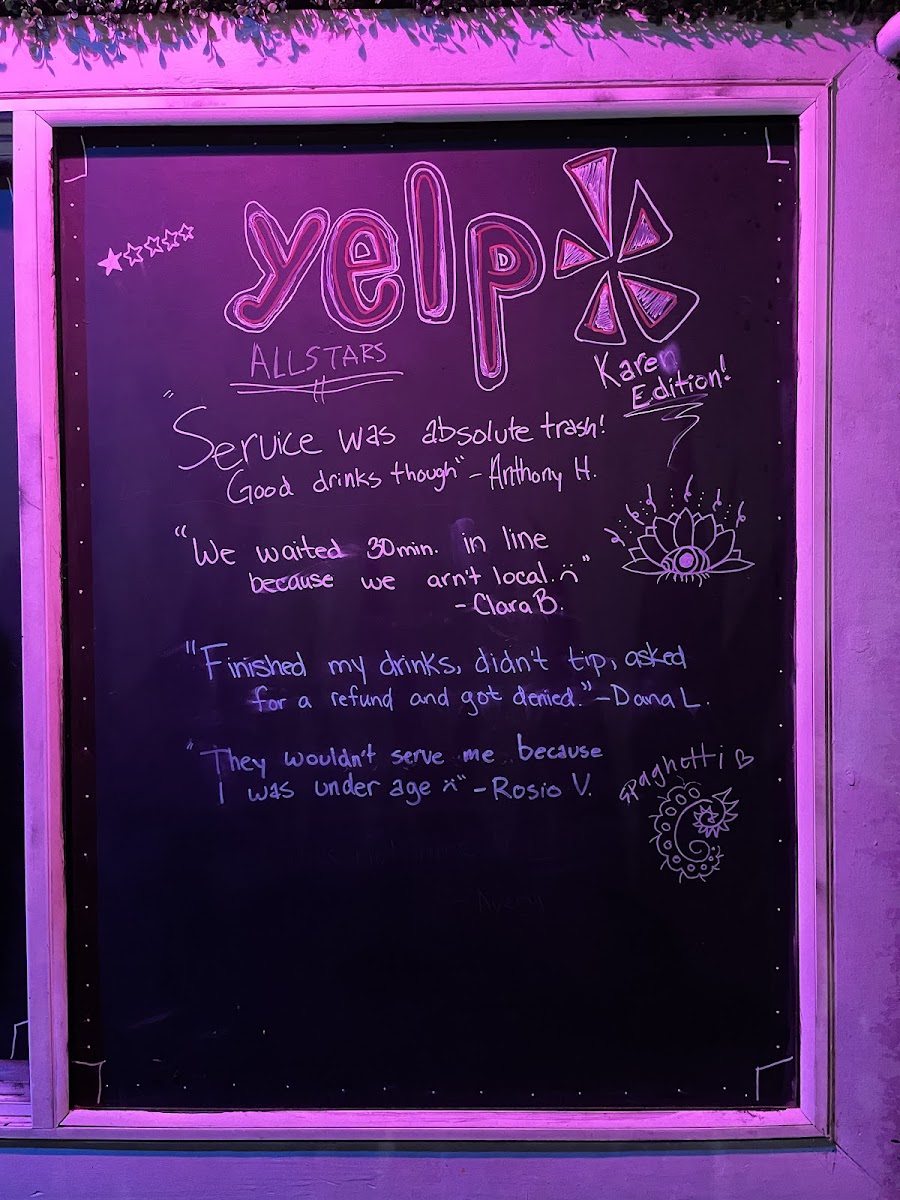 yelp
ALLSTARS
Karen
Edition!
"Service was absolute trash!
Good drinks though" - Anthony H.
"We waited 30min. in line
because we arn't local. :("
- Clara B.
"Finished my drinks, didn't tip, asked
for a refund and got denied." - Dana L.
"They wouldn't serve me because
I was under age :(" - Rosio V.
Spaghetti ♡
Avery